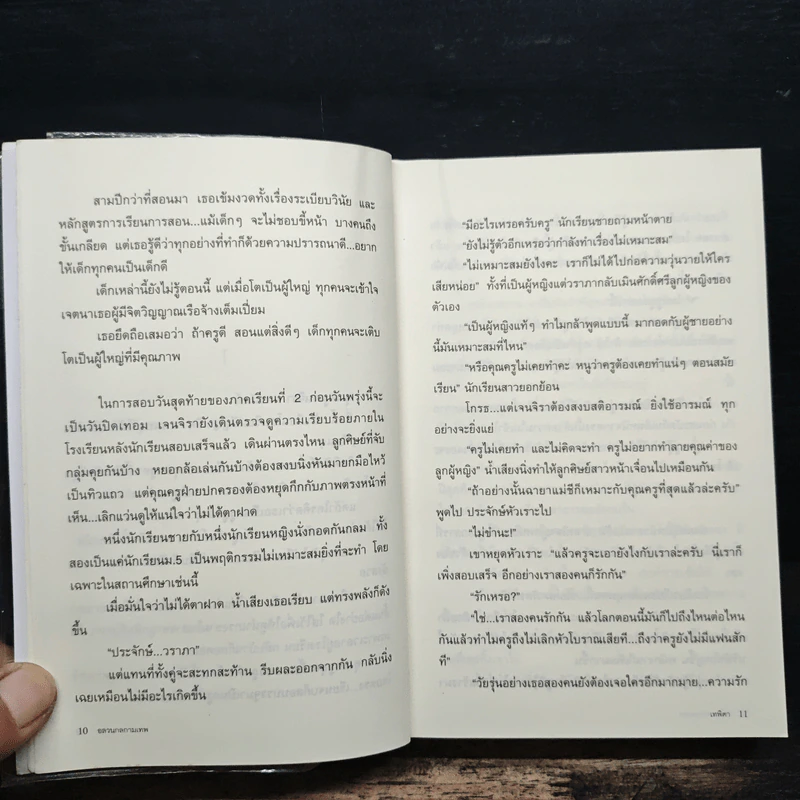 สามปีกว่าที่สอนมา เธอเข้มงวดทั้งเรื่องระเบียบวินัย และ
หลักสูตรการเรียนการสอน...แม้เด็กๆ จะไม่ชอบขี้หน้า บางคนถึง
ขั้นเกลียด แต่เธอรู้ดีว่าทุกอย่างที่ทำก็ด้วยความปรารถนาดี...อยาก
ให้เด็กทุกคนเป็นเด็กดี
เด็กเหล่านี้ยังไม่รู้ตอนนี้ แต่เมื่อโตเป็นผู้ใหญ่ ทุกคนจะเข้าใจ
เจตนาเธอผู้มีจิตวิญญาณเรือจ้างเต็มเปี่ยม
เธอยึดถือเสมอว่า ถ้าครูดี สอนแต่สิ่งดีๆ เด็กทุกคนจะเติบ
โตเป็นผู้ใหญ่ที่มีคุณภาพ
ในการสอบวันสุดท้ายของภาคเรียนที่ 2 ก่อนวันพรุ่งนี้จะ
เป็นวันปิดเทอม เจนจิรายังเดินตรวจดูความเรียบร้อยภายใน
โรงเรียนหลังนักเรียนสอบเสร็จแล้ว เดินผ่านตรงไหน ลูกศิษย์ที่จับ
กลุ่มคุยกันบ้าง หยอกล้อเล่นกันบ้างต้องสงบนิ่งหันมายกมือไหว้
เป็นทิวแถว แต่คุณครูฝ่ายปกครองต้องหยุดกึกกับภาพตรงหน้าที่
เห็น...เลิกแว่นดูให้แน่ใจว่าไม่ได้ตาฝาด
หนึ่งนักเรียนชายกับหนึ่งนักเรียนหญิงนั่งกอดกันกลม ทั้ง
สองเป็นแค่นักเรียนม.5 เป็นพฤติกรรมไม่เหมาะสมยิ่งที่จะทำ โดย
เฉพาะในสถานศึกษาเช่นนี้
เมื่อมั่นใจว่าไม่ได้ตาฝาด น้ำเสียงเธอเรียบ แต่ทรงพลังก็ดัง
ขึ้น
“ประจักษ์...วราภา”
แต่แทนที่ทั้งคู่จะสะทกสะท้าน รีบผละออกจากกัน กลับนิ่ง
เฉยเหมือนไม่มีอะไรเกิดขึ้น
10 อลวนกลกามเทพ
“มีอะไรเหรอครับครู” นักเรียนชายถามหน้าตาย
“ยังไม่รู้ตัวอีกเหรอว่ากำลังทำเรื่องไม่เหมาะสม”
“ไม่เหมาะสมยังไงคะ เราก็ไม่ได้ไปก่อความวุ่นวายให้ใคร
เสียหน่อย” ทั้งที่เป็นผู้หญิงแต่วราภากลับเมินศักดิ์ศรีลูกผู้หญิงของ
ตัวเอง
“เป็นผู้หญิงแท้ๆ ทำไมกล้าพูดแบบนี้ มากอดกับผู้ชายอย่าง
นี้มันเหมาะสมที่ไหน”
“หรือคุณครูไม่เคยทำคะ หนูว่าครูต้องเคยทำแน่ๆ ตอนสมัย
เรียน” นักเรียนสาวยอกย้อน
โกรธ...แต่เจนจิราต้องสงบสติอารมณ์ ยิ่งใช้อารมณ์ ทุก
อย่างจะยิ่งแย่
“ครูไม่เคยทำ และไม่คิดจะทำ ครูไม่อยากทำลายคุณค่าของ
ลูกผู้หญิง” น้ำเสียงนิ่งทำให้ลูกศิษย์สาวหน้าเจื่อนไปเหมือนกัน
“ถ้าอย่างนั้นฉายาแม่ชีก็เหมาะกับคุณครูที่สุดแล้วล่ะครับ”
พูดไป ประจักษ์หัวเราะไป
“ไม่ขำนะ!”
เขาหยุดหัวเราะ “แล้วครูจะเอายังไงกับเราล่ะครับ นี่เราก็
เพิ่งสอบเสร็จ อีกอย่างเราสองคนก็รักกัน”
“รักเหรอ?”
“ใช่...เราสองคนรักกัน แล้วโลกตอนนี้มันก็ไปถึงไหนต่อไหน
กันแล้วทำไมครูถึงไม่เลิกหัวโบราณเสียที...ถึงว่าครูยังไม่มีแฟนสัก
ที”
“วัยรุ่นอย่างเธอสองคนยังต้องเจอใครอีกมากมาย...ความรัก
เทพิตา 11